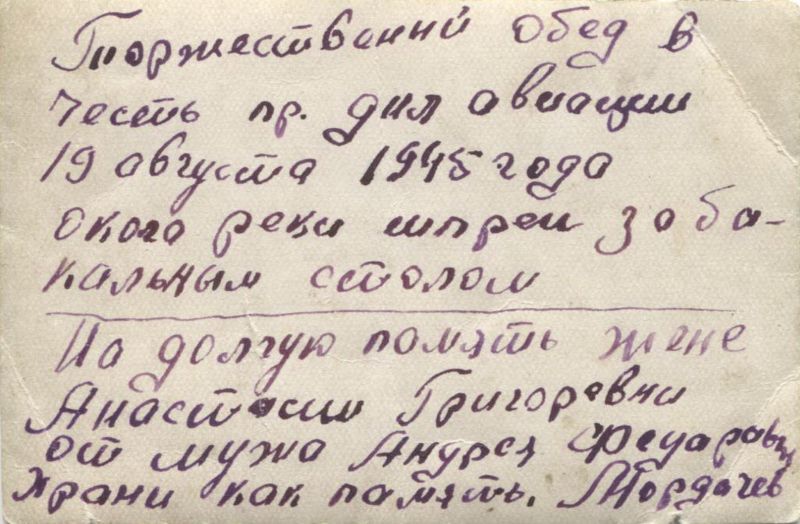 Торжественний обед в
честь пр. дня авиации
19 августа 1945 года
около реки шпреи за ба-
кальным столом
На долгую помять жене
Анастасии Григоревни
от мужа Андрея Федаравич
Храни как память. Мордачев